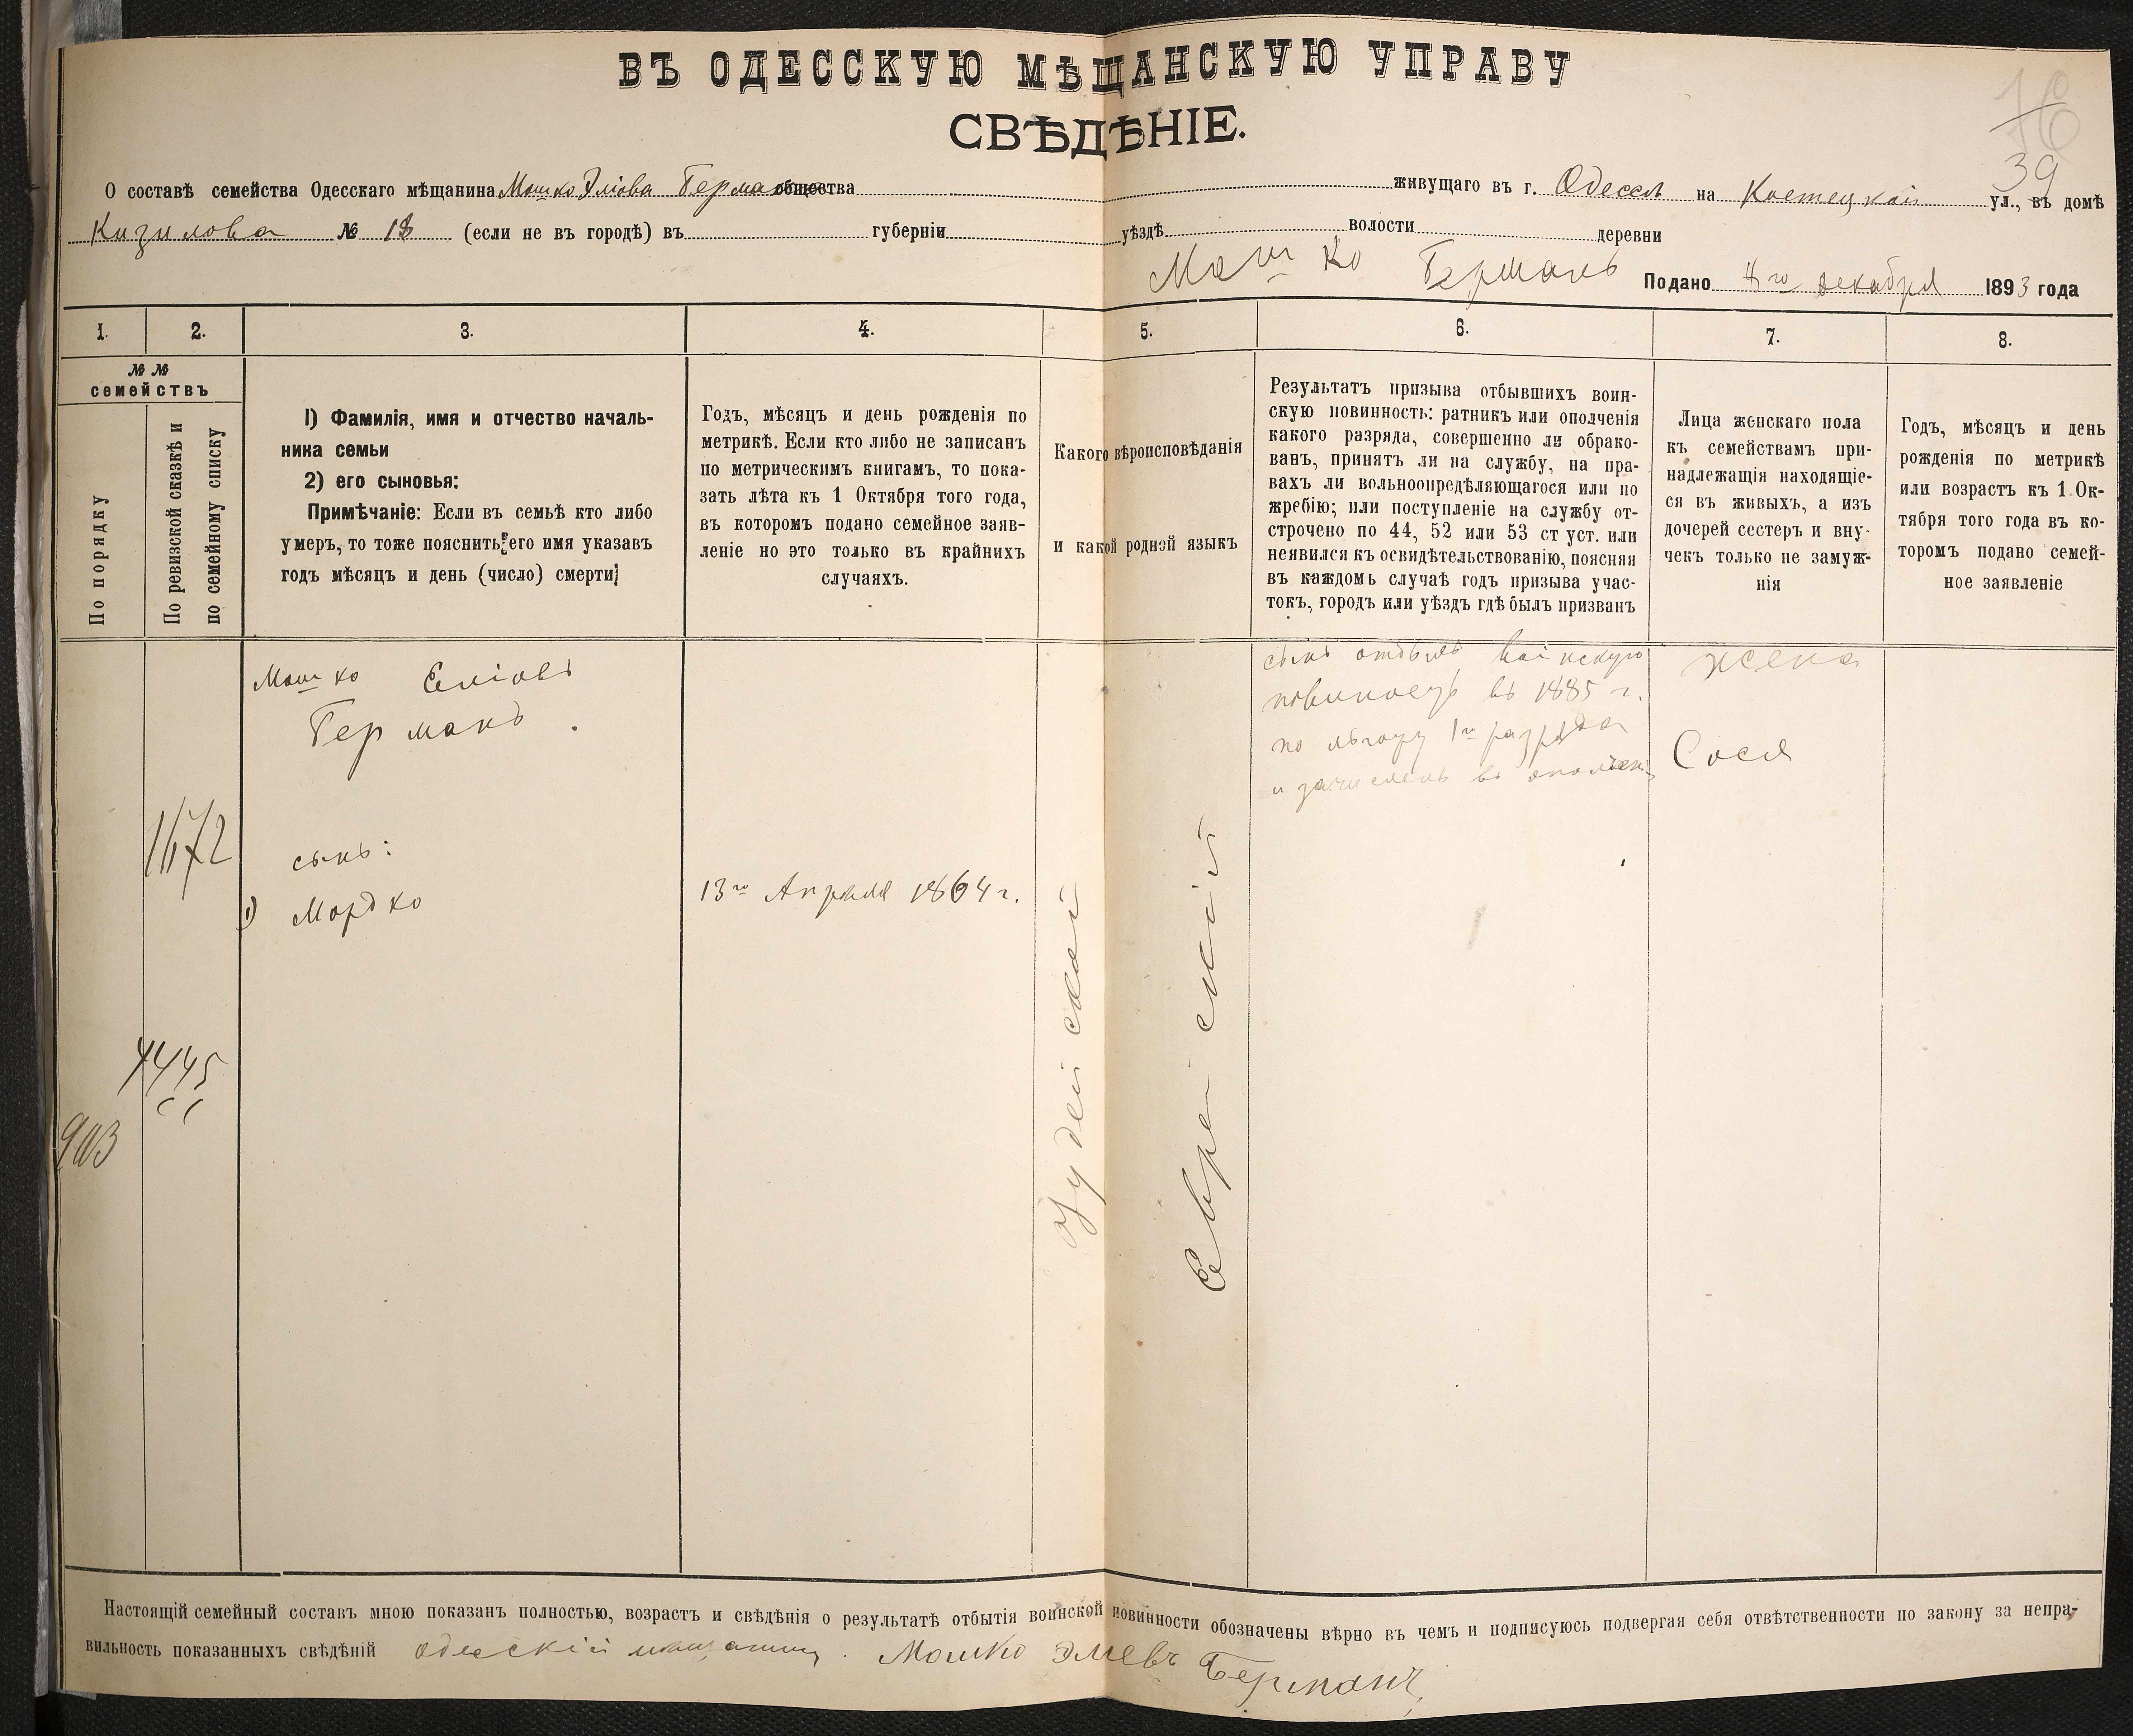 ВЪ ОДЕССКУЮ МѢЩАНСКУЮ УПРАВУ
СВѢДѢНІЕ.
76
39
О составѣ семейства Одесскаго мѣщанина Мошко Эліова Герма общества живущаго въ г. Одессѣ на Костецкой ул., въ домѣ
Кизилова № 18 (если не въ городѣ) въ губерніи уѣздѣ волости деревни
Мошко Германъ Подано 4го декабря 1893 года
1. 2. 3. 4. 5. 6. 7. 8.
№№
семействъ
По порядку
По ревизской сказкѣ и
по семейному списку
1) Фамилія, имя и отчество началь-
ника семьи
2) его сыновья:
Примѣчаніе: Если въ семьѣ кто либо
умеръ, то тоже пояснить его имя указавъ
годъ мѣсяцъ и день (число) смерти
Годъ, мѣсяцъ и день рожденія по
метрикѣ. Если кто либо не записанъ
по метрическимъ книгамъ, то пока-
зать лѣта къ 1 Октября того года,
въ которомъ подано семейное заяв-
леніе но это только въ крайнихъ
случаяхъ.
Какого вѣроисповѣданія
и какой родной языкъ
Результатъ призыва отбывшихъ воин-
скую повинность: ратникъ или ополченія
какого разряда, совершенно ли обрако-
ванъ, принятъ ли на службу, на пра-
вахъ ли вольноопредѣляющагося или по
жребію; или поступленіе на службу от-
строчено по 44, 52 или 53 ст уст. или
неявился къ освидѣтельствованію, поясняя
въ каждомъ случаѣ годъ призыва учас-
токъ, городъ или уѣздъ гдѣ былъ призванъ
Лица женскаго пола
къ семействамъ при-
надлежащія находящіе-
ся въ живыхъ, а изъ
дочерей сестеръ и вну-
чекъ только не замуж-
нія
Годъ, мѣсяцъ и день
рожденія по метрикѣ
или возрастъ къ 1 Ок-
тября того года въ ко-
торомъ подано семей-
ное заявленіе
Мошко Еліовъ
Германъ.
1672
сынъ:
1) Мордко
4445
903
13го Апреля 1864 г.
Іудейской
Еврейский
сынъ отбылъ воинскую
повиность въ 1885 г.
по льготу 1го разряда
и зачисленъ въ ополчен.
жена
Сося
Настоящій семейный составъ мною показанъ полностью, возрастъ и свѣдѣнія о результатѣ отбытія воинской повинности обозначены вѣрно въ чемъ и подписуюсь подвергая себя отвѣтственности по закону за непра-
вильность показанныхъ свѣдѣній одескій мещанинъ. Мошко Элевъ Германъ